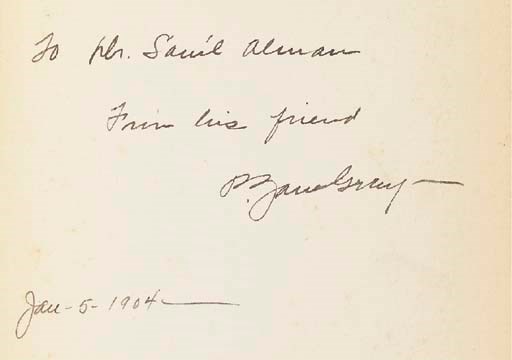 To Mr. Sam'l Alman
From his friend
P. Zane Grey
Jan-5-1904